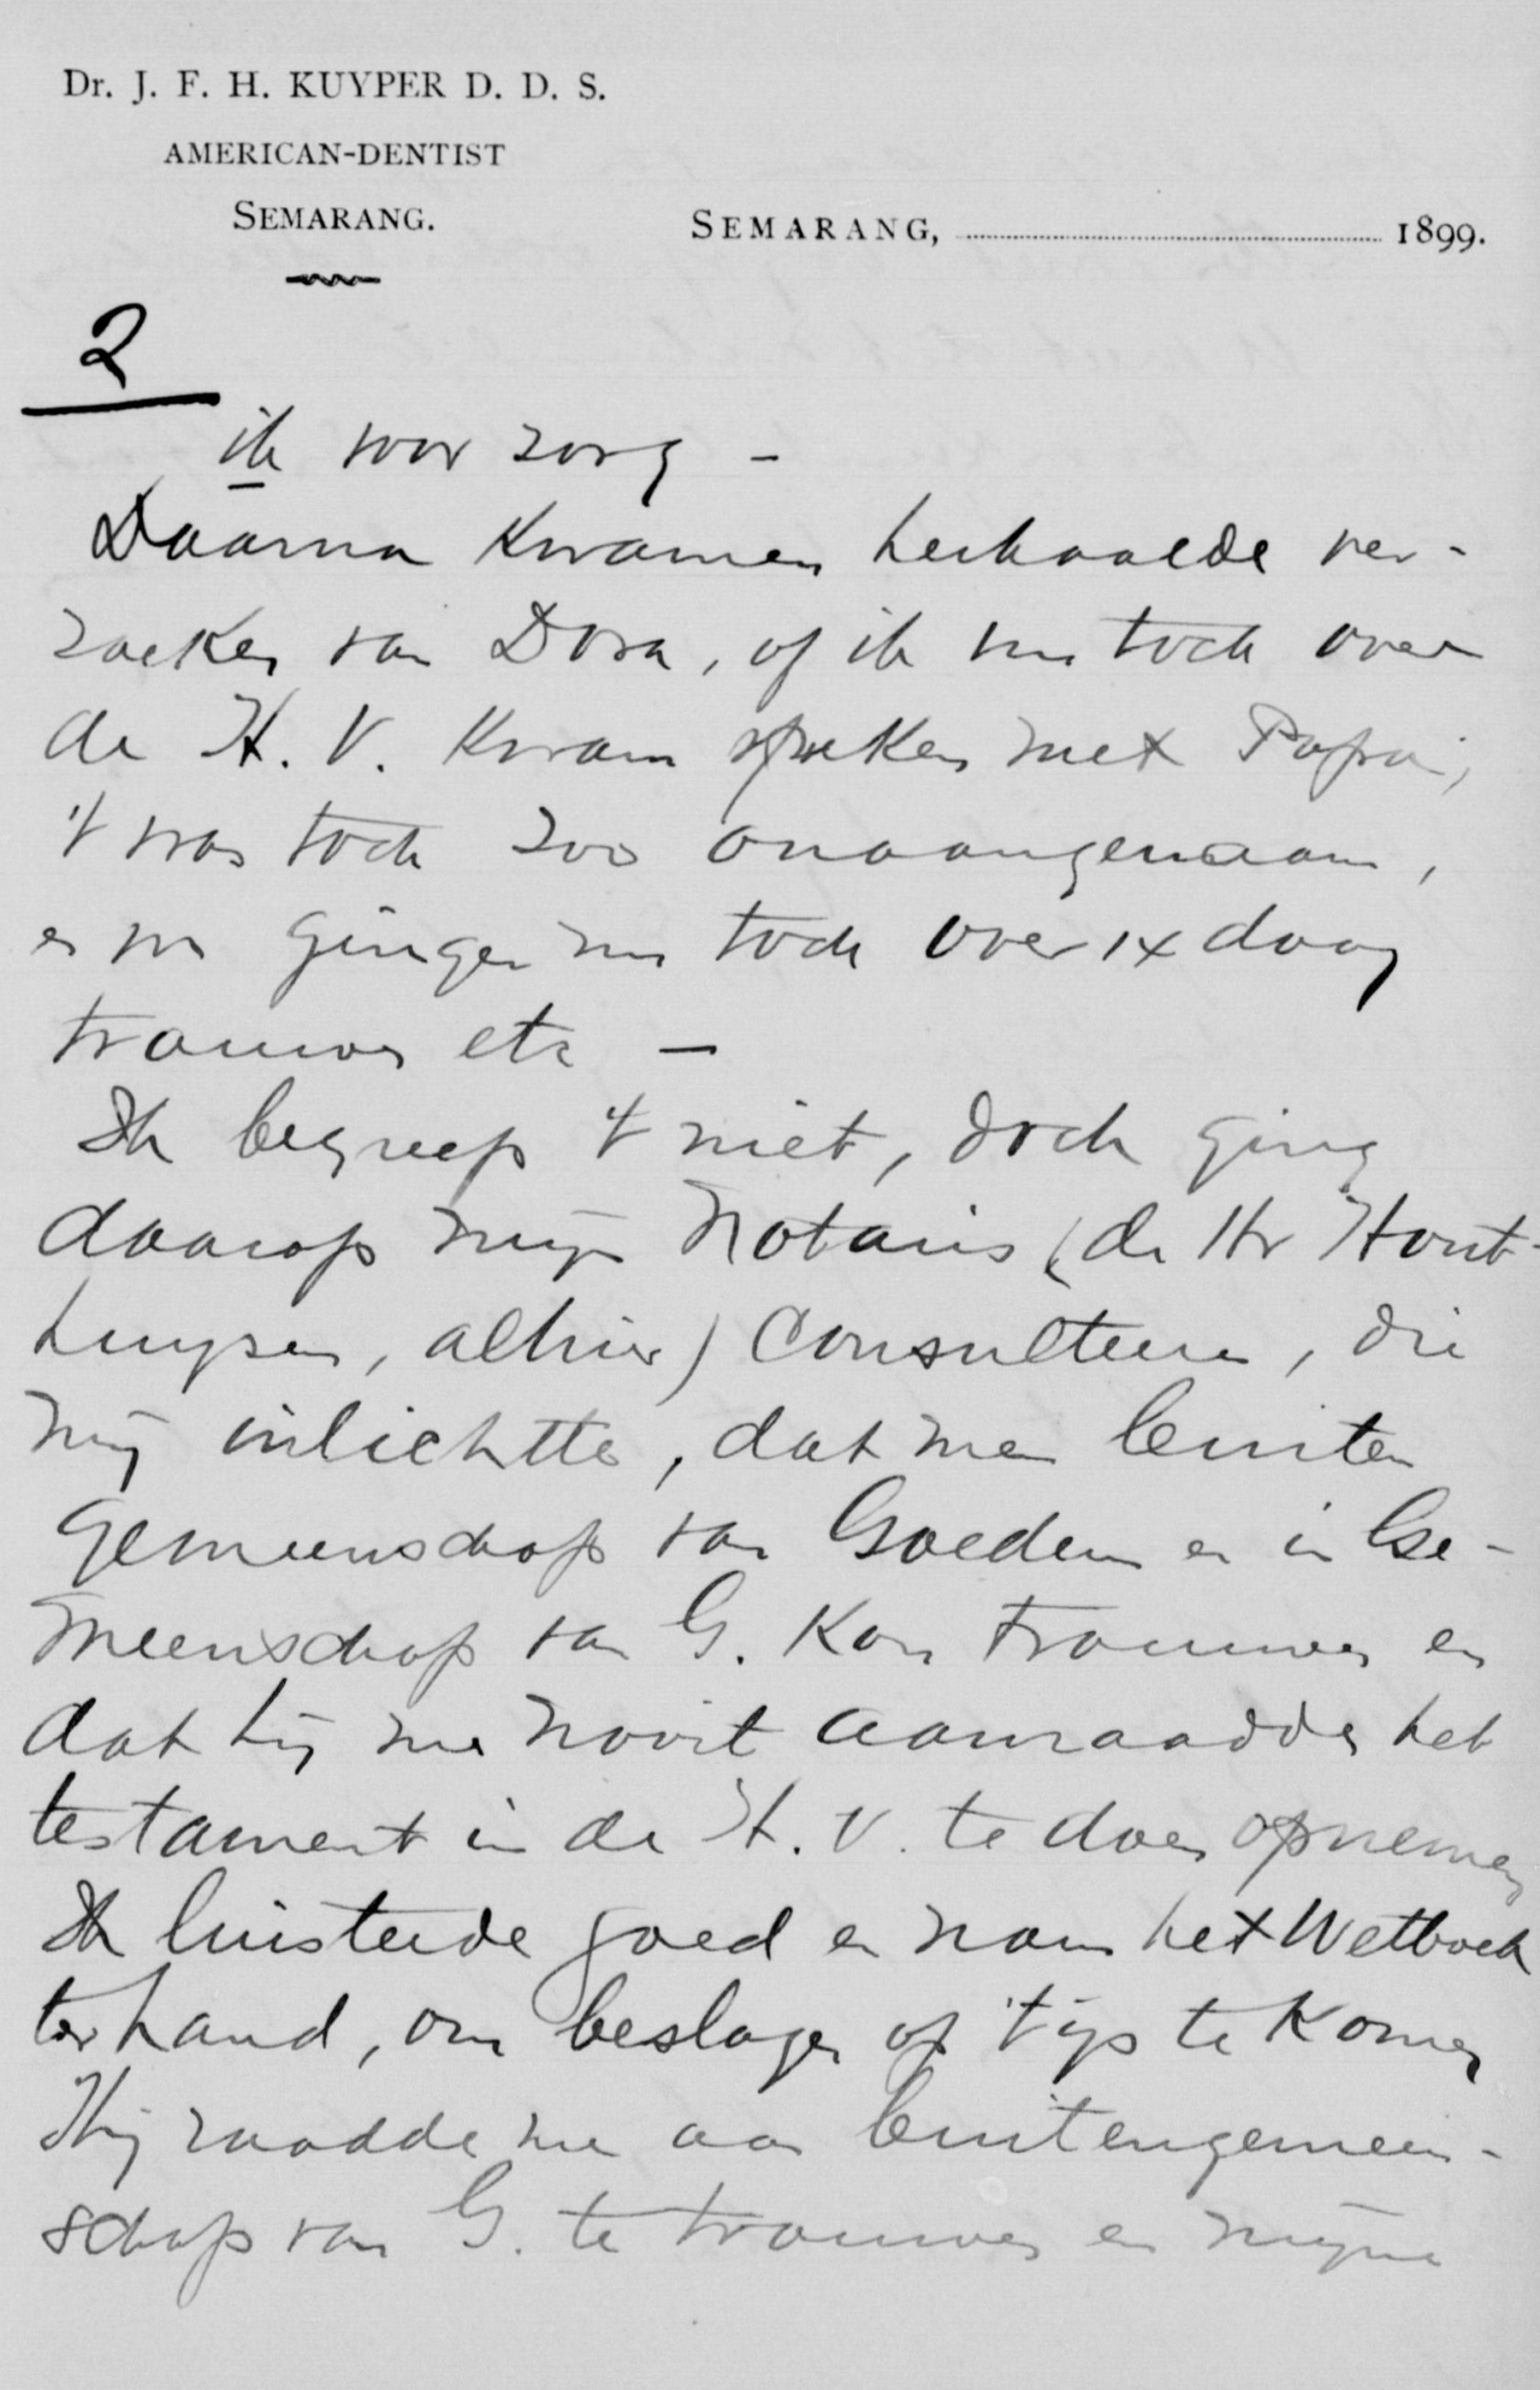 Dr. J. F. H. KUYPER D. D. S.
AMERICAN-DENTIST
SEMARANG.
SEMARANG, 1899.
2
ik voor zorg -
Daarna kwamen herhaalde ver-
zoeken van Dora, of ik nu toch over
de H. V. kwam spreken met Papa,
't was toch zoo onaangenaam,
en we gingen nu toch over 14 daag
trouwen etc -
Ik begreep 't niet, doch ging
daarop mijn Notaris (de Hr Hout-
huysen, alhier) consulteeren, die
mij inlichtte, dat men buiten
gemeenschap van Goederen en in Ge-
meenschap van G. kon trouwen en
dat hij me nooit aanraadde het
testament in de H. V. te doen opnemen
Ik luisterde goed en nam het Wetboek
ter hand, om beslagen op 't ijs te komen
Hij raadde me aan buitengemeen-
schap van G. te trouwen en mijne